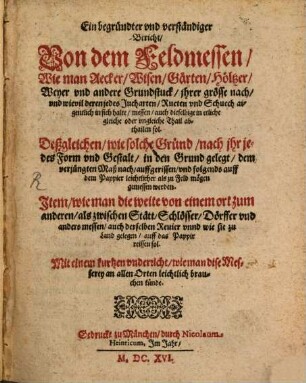 Ein begründter vnd verständiger
Bericht/
Von dem Feldmessen/
Wie man Aecker/ Wisen/ Gärten/ Höltzer/
Weyer vnd andere Grundstuck/ jhrer grösse nach/
vnd wievil deren jedes Jucharten/ Rueten vnd Schuech ai-
gentlich in sich halte/ messen/ auch dieselbige in etliche
gleiche oder vngleiche Thail ab-
thailen sol.
Deßgleichen/ wie solche Gründ/ nach jhr je-
des Form vnd Gestalt/ in den Grund gelegt/ dem
verjüngten Maß nach/ auffgerissen/ vnd folgends auff
dem Pappier leichtlicher als zu Feld mögen
gemessen werden.
Item/ wie man die weite von einem ort zum
anderen/ als zwischen Stätt/ Schlösser/ Dörffer vnd
anders messen/ auch derselben Reuier vnnd wie sie zu
Land gelegen/ auff das Pappir
reissen sol.
Mit einem kurtzen vndericht/ wie man dise Mes-
serey an allen Orten leichtlich brau-
chen künde.
Gedruckt zu München/ durch Nicolaum
Heinricum, Im Jahr/
M. DC. XVI.